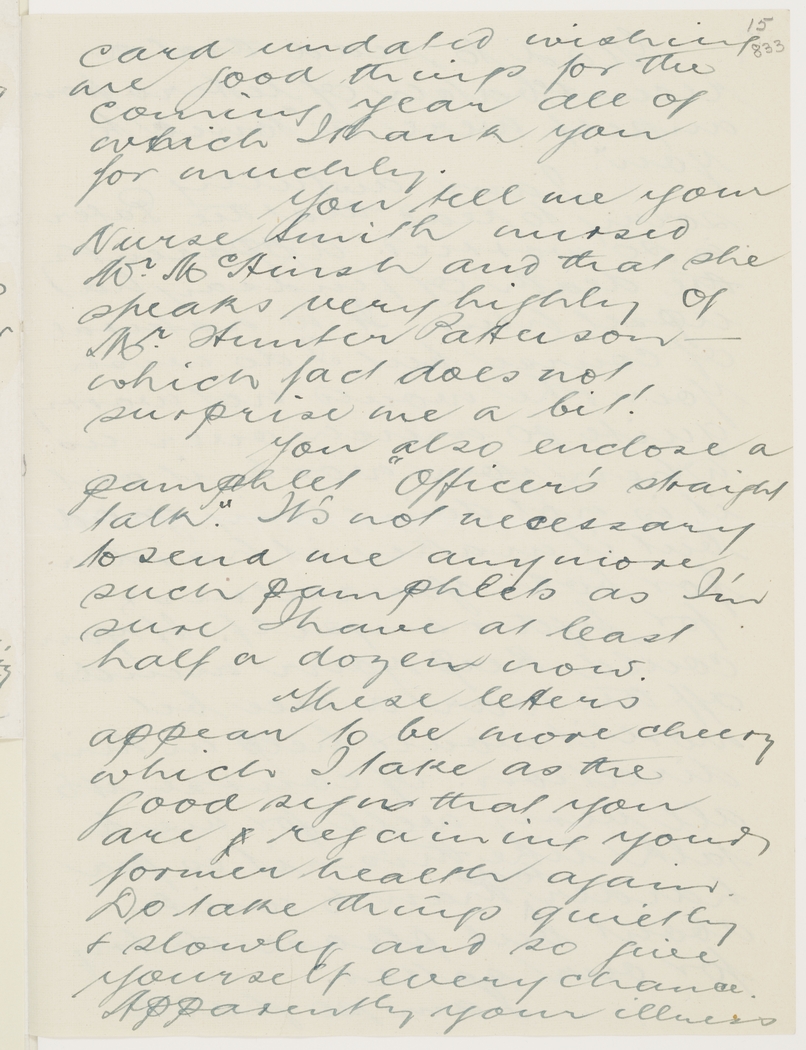 15
833
card undated wishing
me good things for the
coming year all of
which I thank you
for muchly.
You tell me your
Nurse Smith nursed
Mr. McHirsh and that she
speaks very highly of
Mr. Hunter Patterson —
which fact does not
surprise me a bit!
You also enclose a
pamphlet "Officer's straight
talk." It's not necessary
to send me anymore
such pamphlets as I'm
sure I have at least
half a dozen now.
These letters
appear to be more cheery
which I take as the
good sign that you
are regaining your
former health again.
Do take things quietly
& slowly and so give
yourself every chance.
Apparently your illness